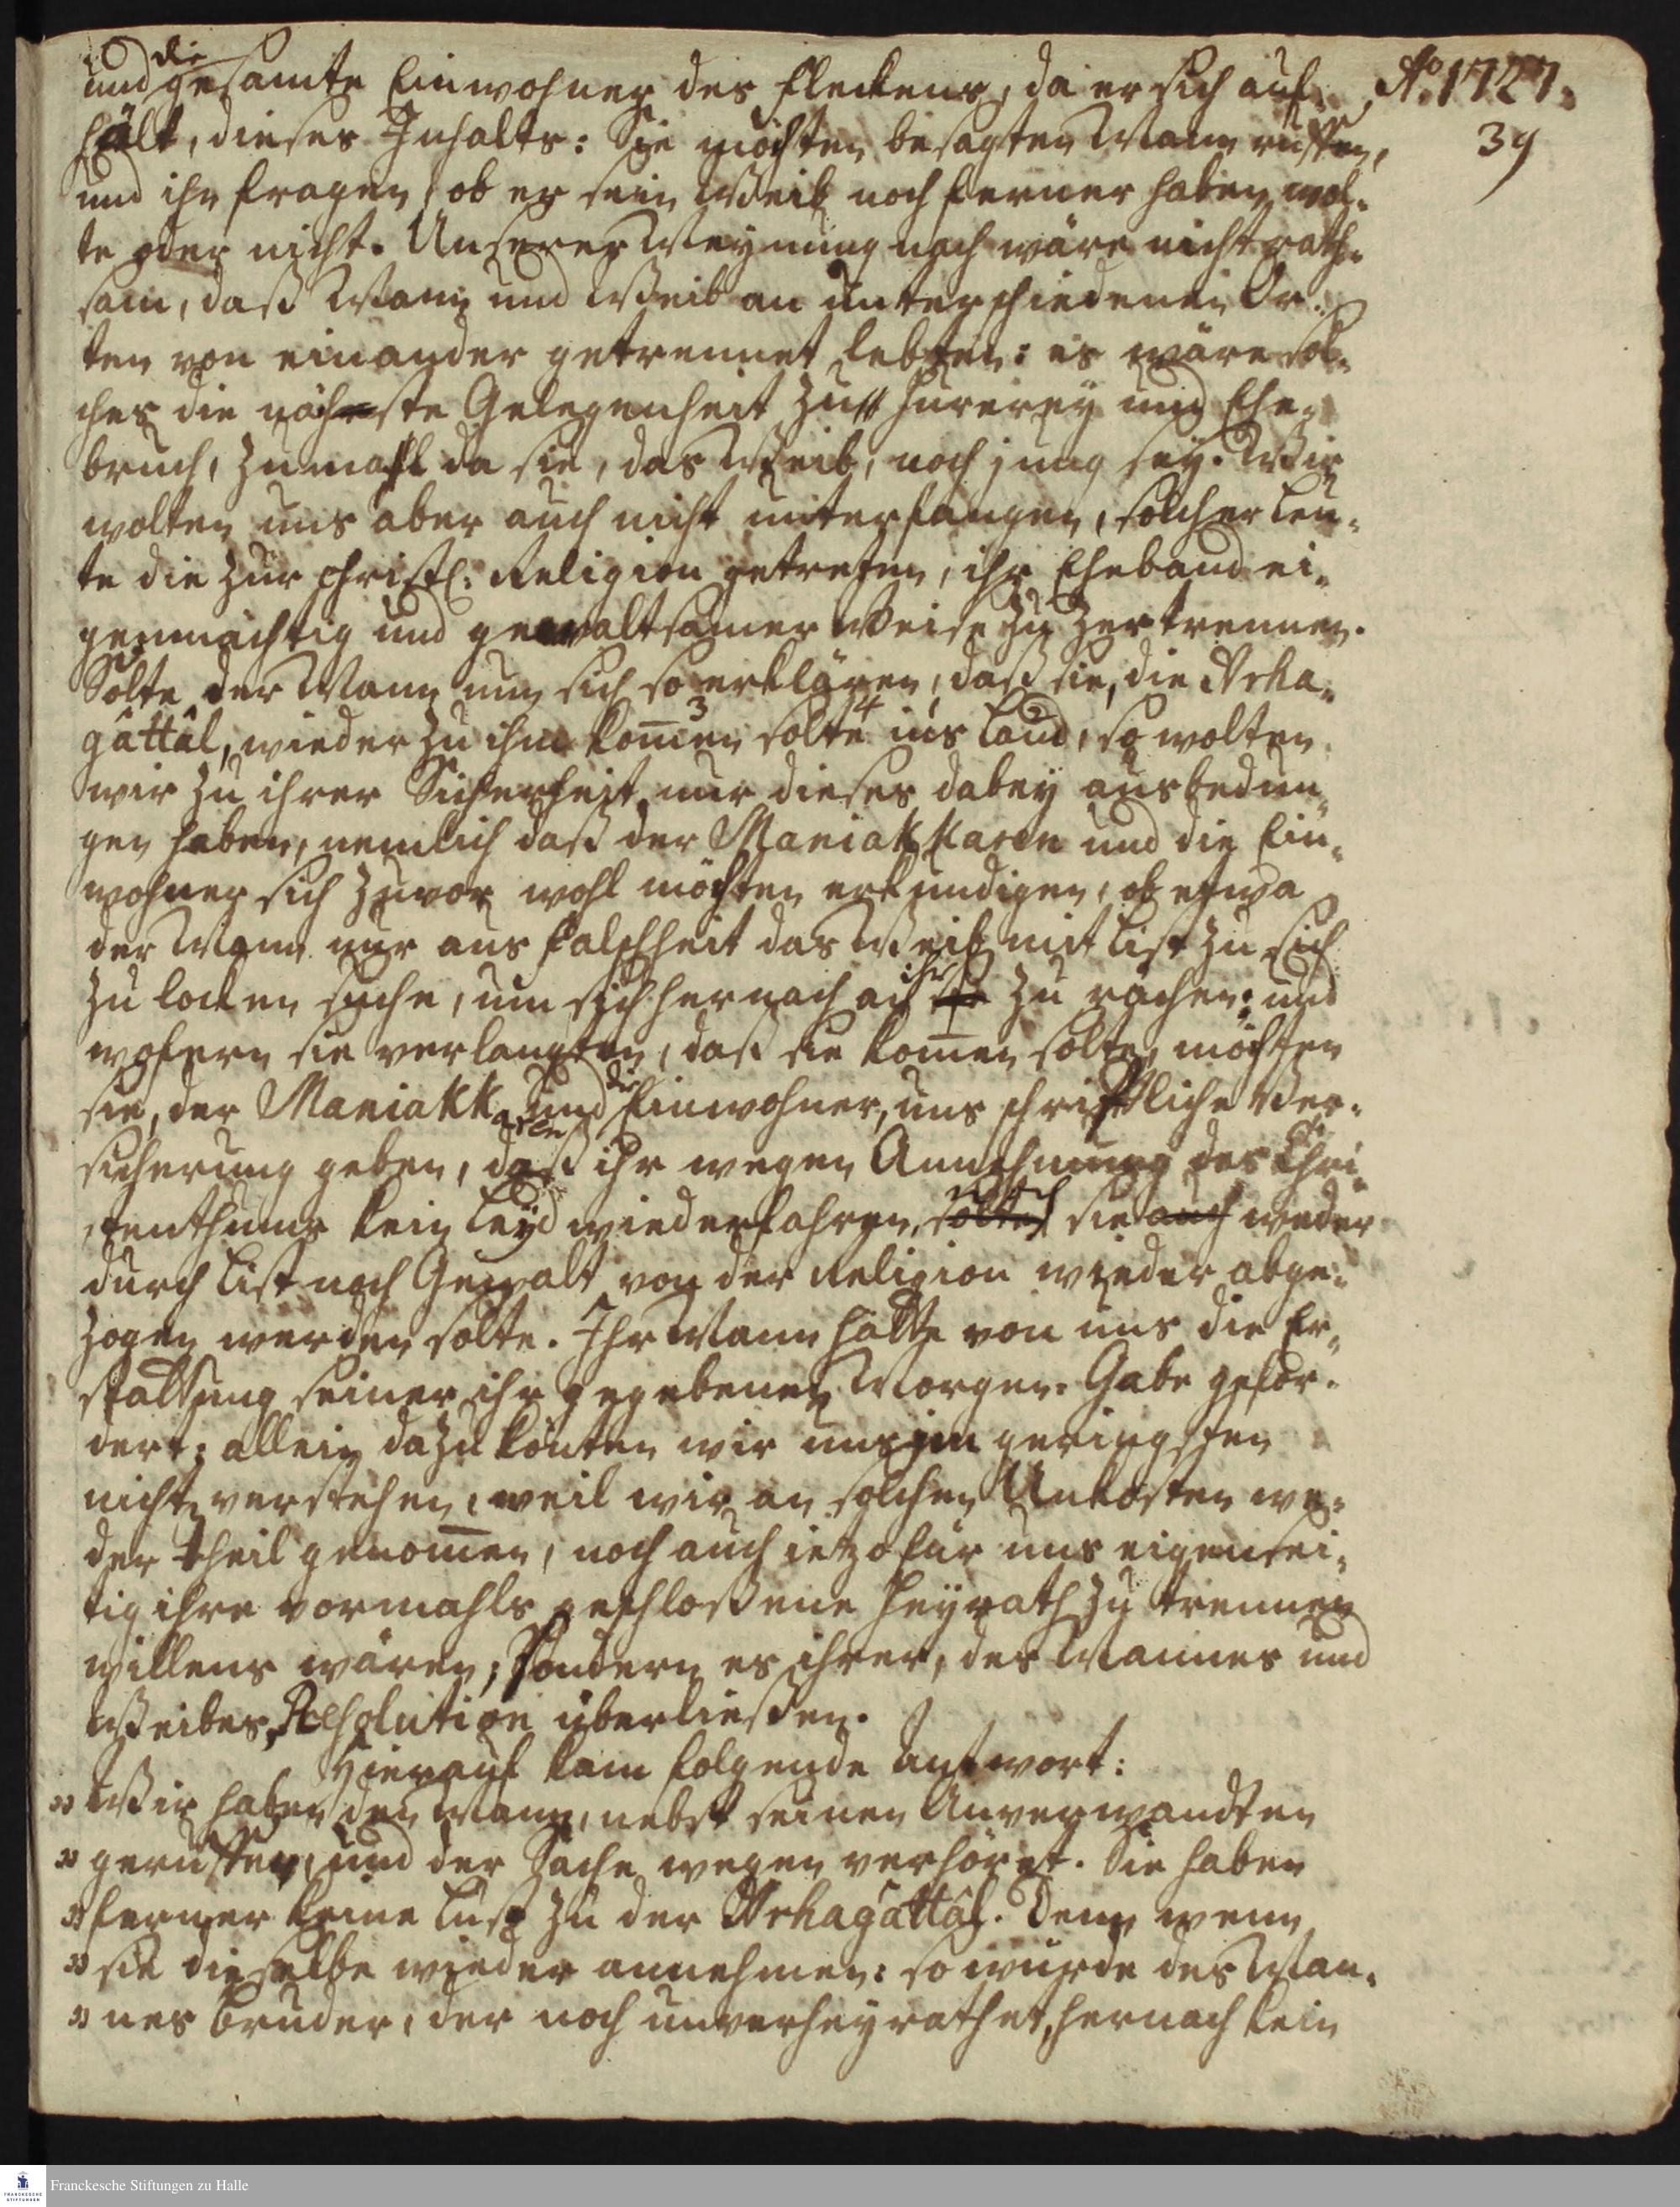 Ao. 1727.
39
und die gesamte Einwohner des Fleckens, da er sich auf-
hält, dieses Inhalts: Sie möchten besagten Mann ruffen,
und ihn fragen, ob er sein Weib noch ferner haben wol-
te oder nicht. Unserer Meynung nach wäre nicht rath-
sam, daß Mann und Weib an unterschiedenen Or-
ten von einander getrennet lebten: es wäre sol-
ches die nächste Gelegenheit zu Hurerey und Ehe-
bruch, zumahl da sie, das Weib, noch jung sey. Wir
wolten uns aber auch nicht unterfangen, solcher Leu-
te die zur christl: Religion getreten, ihr Eheband ei-
genmächtig und gewaltsamer Weise zu zertrennen.
Solte der Mann nun sich so erklären, daß sie, die Arka-
gâttâl, wieder zu ihm kom̅en 3 solte 4 ins Land, 2 so wolten
wir zu ihrer Sicherheit nur dieses dabey ausbedun-
gen haben, nemlich daß der Maniakkaren und die Ein-
wohner sich zuvor wohl möchten erkundigen, ob etwa
der Mann nur aus Falschheit das Weib mit List zu sich
zu locken suche, um sich hernach an ihr zu rächen: und
wofern sie verlangten, daß sie kom̅en solte, möchten
sie, der Maniakkaren und die Einwohner, uns schriftliche Ver-
sicherung geben, daß ihr wegen Annehmung des Chri-
stenthums kein Leyd wiederfahren, solte sie auch weder
durch List noch Gewalt von der Religion wieder abge-
zogen werden solte. Ihr Mann hätte von uns die Er-
stattung seiner ihr gegebenen Morgen-Gabe gefor-
dert; allein dazu könten wir uns im geringsten
nicht verstehen, weil wir an solchen Unkosten we-
der theil genom̅en, noch auch ietzo für uns eigensei-
tig ihre vormahls geschloßene Heyrath zu trennen
willens wären; sondern es ihrer, des Mannes und
Weibes, Resolution überließen.
Hierauf kam folgende Antwort:
» Wir haben den Mann, nebst seinen Anverwandten
» geruffen, und der Sache wegen verhöret. Sie haben
» ferner keine Lust zu der Arkagâttâl. Denn wenn
» sie dieselbe wieder annehmen: so würde des Man-
» nes Bruder, der noch unverheyrathet, hernach kein
Franckesche Stiftungen zu Halle
FRANCKESCHE
STIFTUNGEN